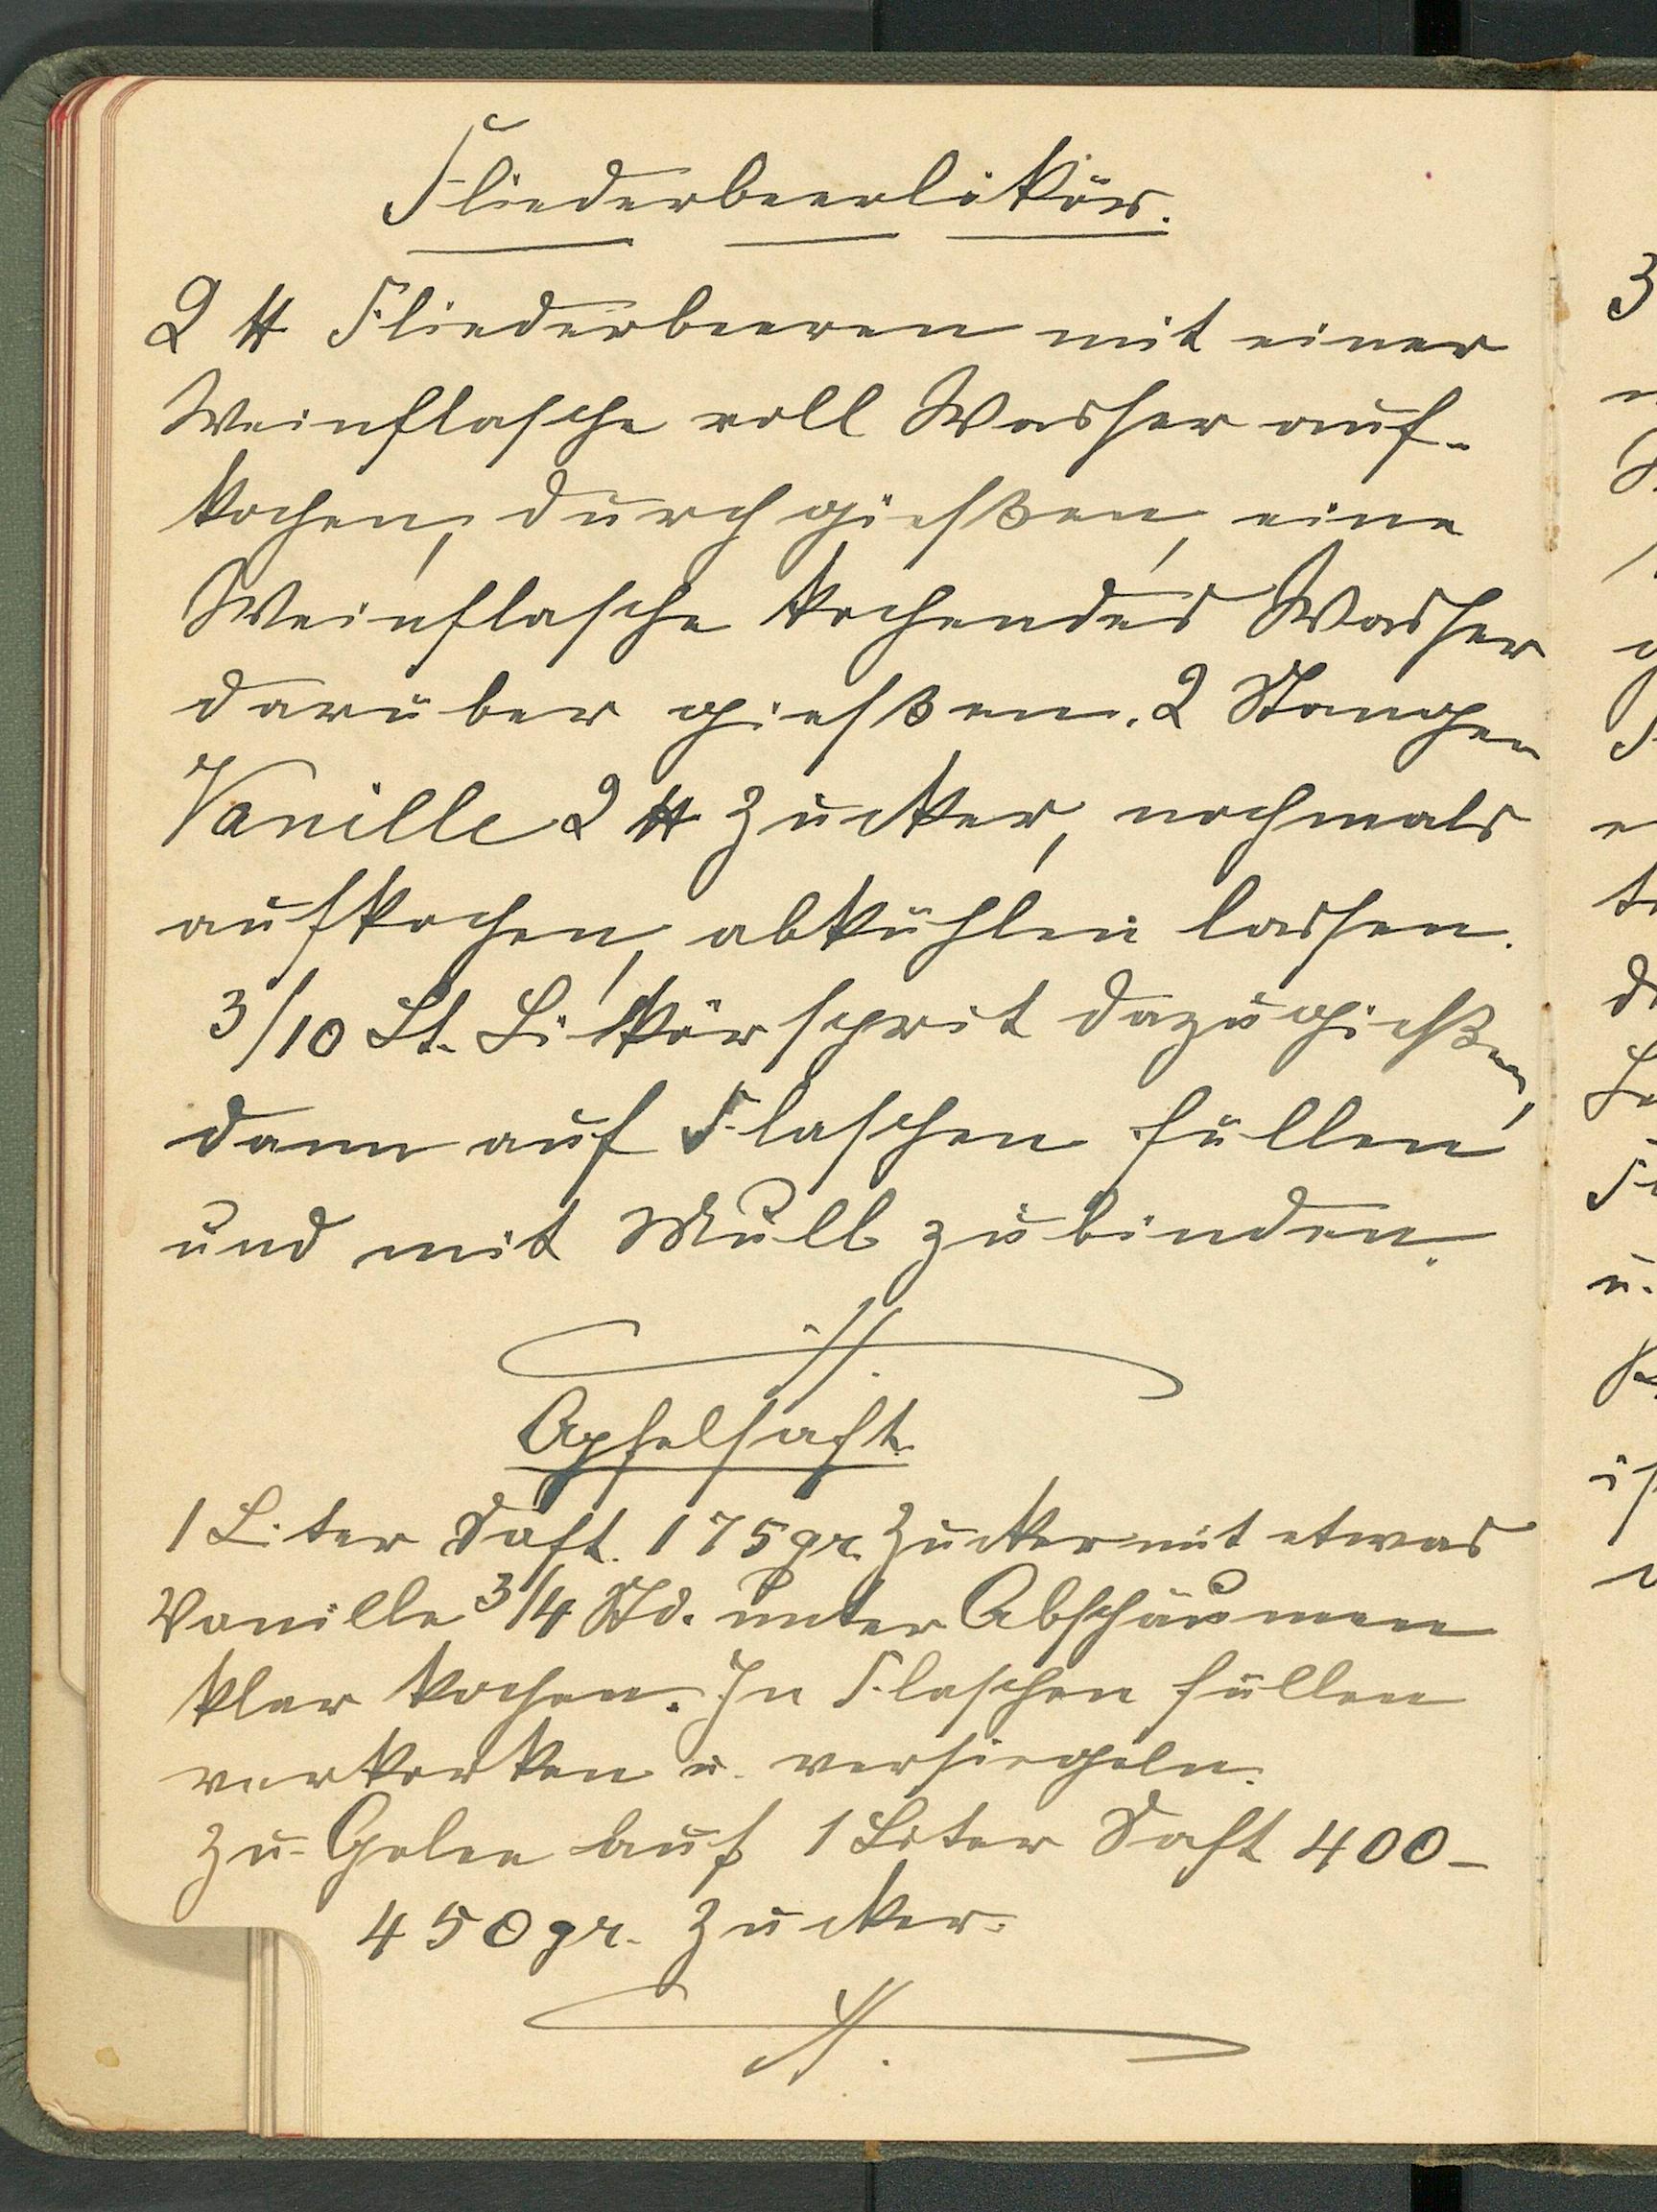 Fliederbeerlikör.
2 ℔ Fliederbeeren mit einer
Weinflasche voll Wasser auf-
kochen, durchgießen, eine
Weinflasche kochendes Wasser
darüber gießen. 2 Stangen
Vanille 2 ℔ Zucker, nochmals
aufkochen, abkühlen lassen.
3/10 Lt. Likörsprit dazugießen,
dann auf Flaschen füllen
und mit Mull zubinden.
Apfelsaft.
1 Liter Saft. 175 gr. Zucker mit etwas
Vanille 3/4 Std. unter Abschäumen
klar kochen. In Flaschen füllen
verkorken u. versiegeln.
Zu Gelee auf 1 Liter Saft 400-
450 gr. Zucker.